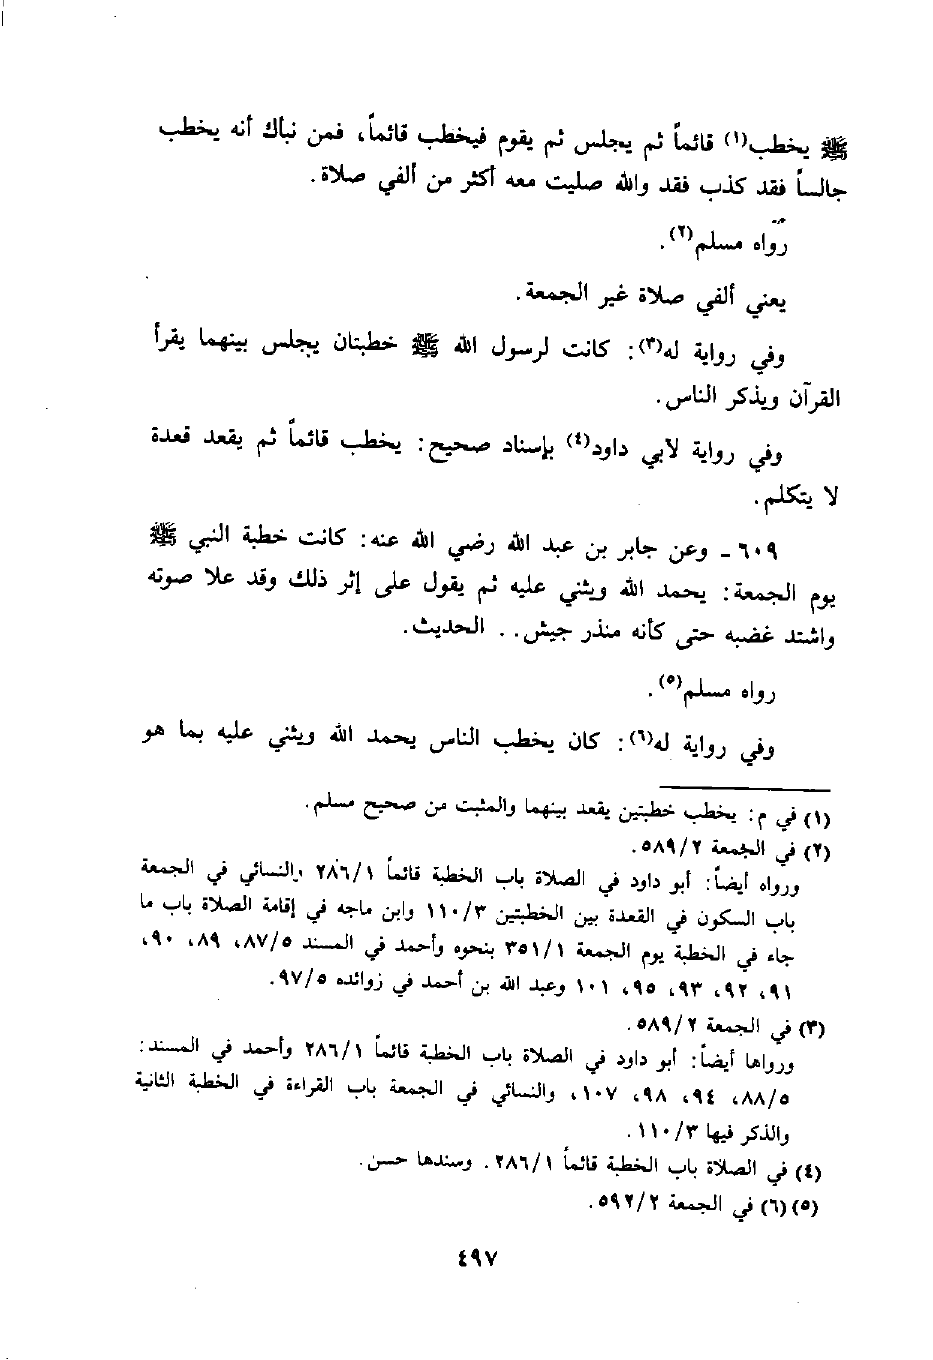 ﷺ يخطب(١) قائماً ثم يجلس ثم يقوم فيخطب قائماً، فمن نبأك أنه يخطب
جالساً فقد كذب فقد والله صليت معه أكثر من ألفي صلاة.
رواه مسلم(٢).
يعني ألفي صلاة غير الجمعة.
وفي رواية له(٣): كانت لرسول الله ﷺ خطبتان يجلس بينهما يقرأ
القرآن ويذكر الناس.
وفي رواية لأبي داود(٤) بإسناد صحيح: يخطب قائماً ثم يقعد قعدة
لا يتكلم.
٦٠٩ ـ وعن جابر بن عبد الله رضي الله عنه: كانت خطبة النبي ﷺ
يوم الجمعة: يحمد الله ويثني عليه ثم يقول على إثر ذلك وقد علا صوته
واشتد غضبه حتى كأنه منذر جيش.. الحديث.
رواه مسلم(٥).
وفي رواية له(٦): كان يخطب الناس يحمد الله ويثني عليه بما هو
(١) في م: يخطب خطبتين يقعد بينهما والمثبت من صحيح مسلم.
(٢) في الجمعة ٥٨٩/٢.
ورواه أيضاً: أبو داود في الصلاة باب الخطبة قائماً ٢٨٦/١ والنسائي في الجمعة
باب السكون في القعدة بين الخطبتين ١١٠/٣ وابن ماجه في إقامة الصلاة باب ما
جاء في الخطبة يوم الجمعة ٣٥١/١ بنحوه وأحمد في المسند ٨٧/٥، ٨٩، ٩٠،
٩١، ٩٢، ٩٣، ٩٥، ١٠١ وعبد الله بن أحمد في زوائده ٩٧/٥.
(٣) في الجمعة ٥٨٩/٢.
ورواها أيضاً: أبو داود في الصلاة باب الخطبة قائماً ٢٨٦/١ وأحمد في المسند:
٨٨/٥، ٩٤، ٩٨، ١٠٧، والنسائي في الجمعة باب القراءة في الخطبة الثانية
والذكر فيها ١١٠/٣.
(٤) في الصلاة باب الخطبة قائماً ٢٨٦/١. وسندها حسن.
(٥)(٦) في الجمعة ٥٩٢/٢.
٤٩٧